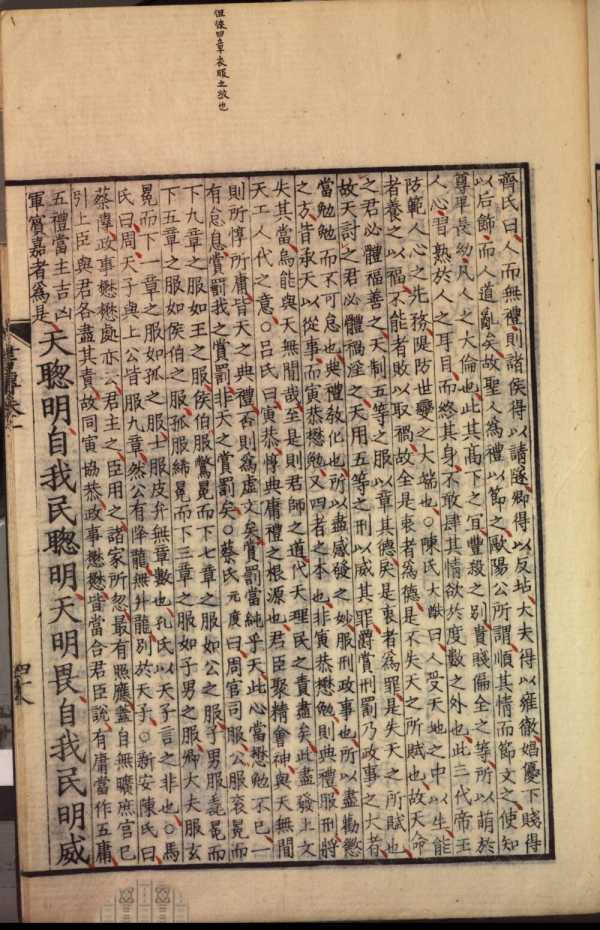 但後四章衣服之故也
齊氏曰人而無禮則諸侯得以請隧卿得以反坫大夫得以雍徹娼優下賤得
以后飾而人道亂矣故聖人為禮以節之歐陽公所謂順其情而節文之使知
尊卑長幼凡人之大倫也此其高下之宜豐殺之別貴賤偏全之等所以萌於
人心習熟於人之耳目而終其身不敢肆其情欲於度數之外也此三代帝王
防範人心之先務隄防世變之大端也○陳氏大猷曰人受天地之中以生能
者養之以福不能者敗以取禍故全是衷者為德是不失天之所賦也故天命
之君必體福善之天制五等之服以章其德戾是衷者為罪是失天之所賦也
故天討之君必體禍淫之天用五等之刑以威其罪爵賞刑罰乃政事之大者
當勉勉而不可怠也典禮教化也所以盡感發之妙服刑政事也所以盡勸懲
之方皆承天以從事而寅恭懋勉又四者之本也非寅恭懋勉則典禮服刑將
失其當烏能與天無間哉至是則君師之道代天理民之責盡矣此盡發上文
天工人代之意○呂氏曰寅恭惇典庸禮之根源也君臣聚精會神與天無間
則所惇所庸皆天之典禮否則為虛文矣賞罰當純乎天此心當懋勉不已一
有怠息賞罰我之賞罰非天之賞罰矣○蔡氏元度曰周官司服公服衮冕而
下九章之服如王之服侯伯服鷩冕而下七章之服如公之服子男服毳冕而
下五章之服如侯伯之服孤服絺冕而下三章之服如子男之服卿大夫服玄
冕而下一章之服如孤之服士服皮弁無章數也孔氏以天子言之非也○馬
氏曰周天子與上公皆服九章然公有降龍無升龍別於天子○新安陳氏曰
蔡傳政事懋懋處亦云君主之臣用之諸家所忽最有照應蓋自無曠庶官已
引上臣與君各盡其責故同寅協恭政事懋懋皆當合君臣說有庸當作五庸
五禮當主吉凶
軍賓嘉者為是
天聰明自我民聰明天明畏自我民明威
書傳卷一
四十八